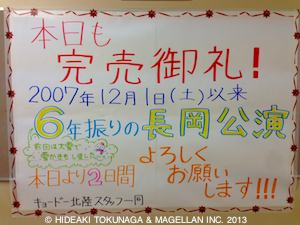 本日も
完売御礼!
2007年12月1日(土)以来
6年振りの長岡公演
前回は大雪で
雪かきをしました
よろしく
お願い
します!!!
本日より2日間
キョードー北陸スタッフ一同
© HIDEAKI TOKUNAGA & MAGELLAN INC. 2013